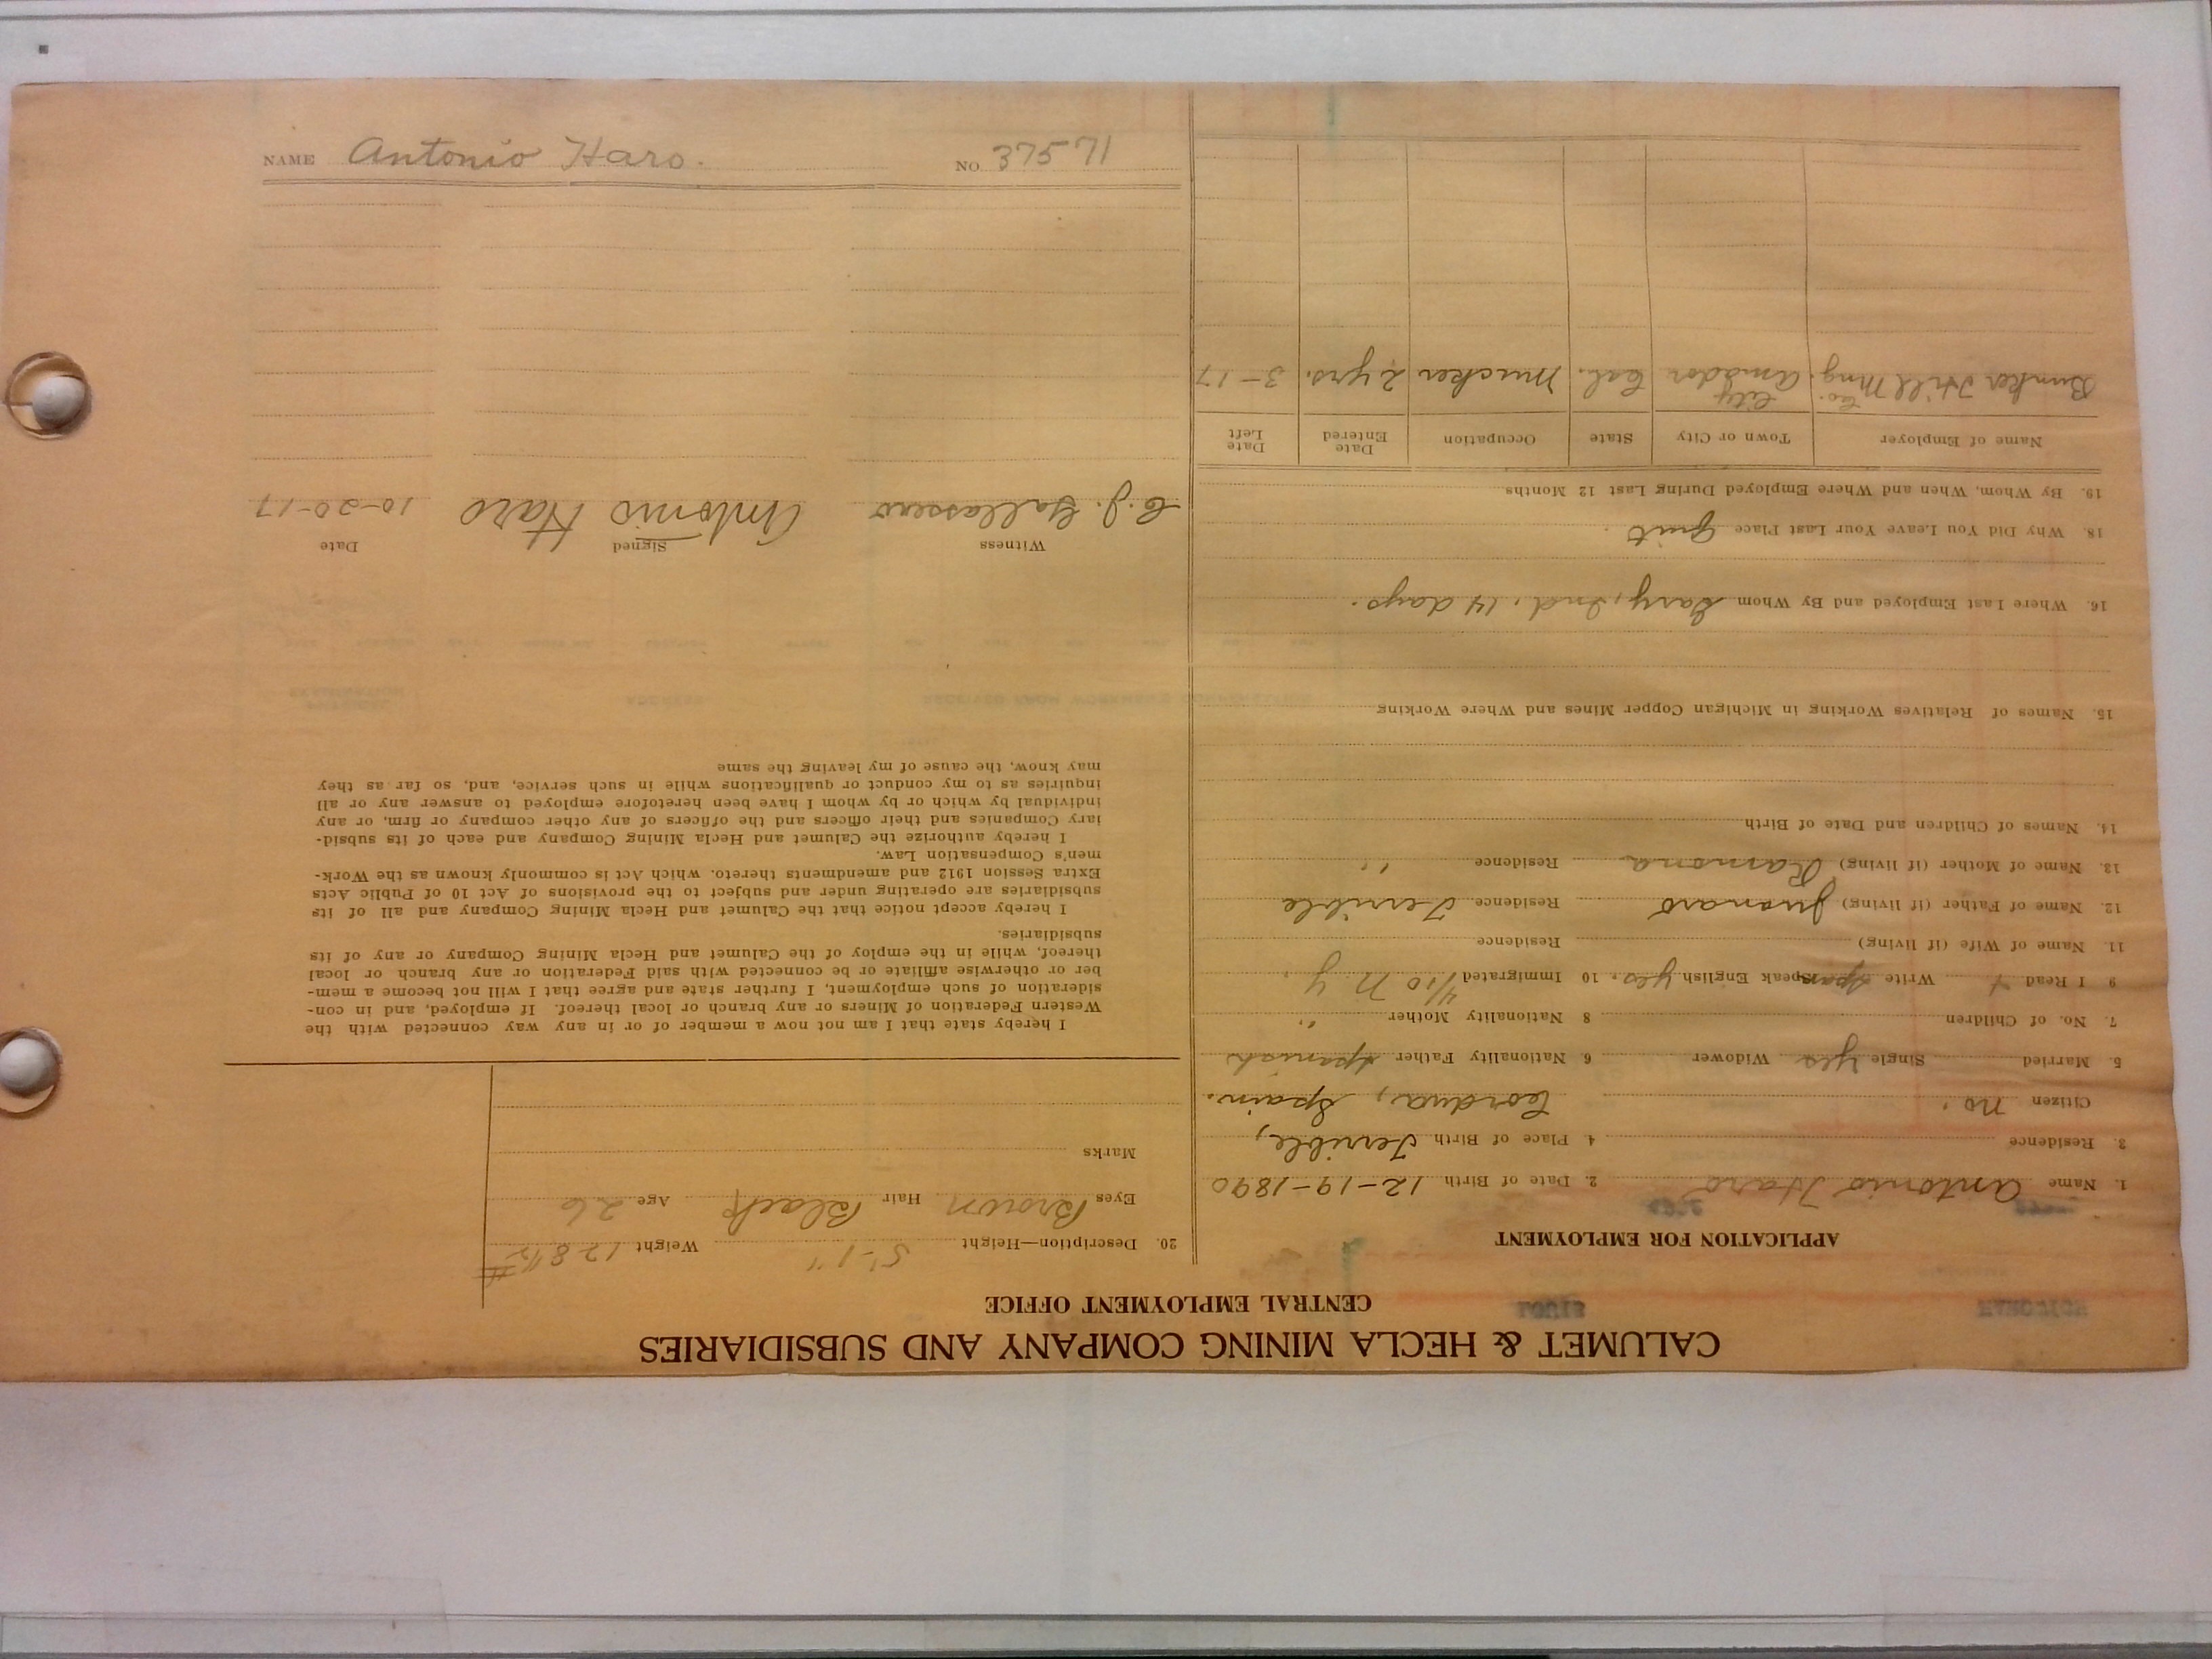 CALUMET & HECLA MINING COMPANY AND SUBSIDIARIES
CENTRAL EMPLOYMENT OFFICE
APPLICATION FOR EMPLOYMENT
1. Name Antonio Haro 2. Date of Birth 12-19-1890
3. Residence 4. Place of Birth Terrible,
Citizen no. Cordua, Spain.
5. Married Single yes Widower 6. Nationality Father Spanish
7. No. of Children 8 Nationality Mother "
9 I Read Write Span Speak English yes. 10 Immigrated 4/10 N Y
11. Name of Wife (if living) Residence
12. Name of Father (if living) Residence Terrible
13. Name of Mother (if living) Ramona Residence "
14. Names of Children and Date of Birth
15. Names of Relatives Working in Michigan Copper Mines and Where Working
16. Where Last Employed and By Whom Gary, Ind. 14 days.
18. Why Did You Leave Your Last Place Quit
19. By Whom, When and Where Employed During Last 12 Months
Name of Employer Town or City State Occupation Date Entered Date Left
Bunker Hill Mng. Co. Amador City Cal. Mucker 2 yrs. 3-17
20. Description—Height 5'-1" Weight 128½ #
Eyes Brown Hair Black Age 26
Marks
I hereby state that I am not now a member of or in any way connected with the
Western Federation of Miners or any branch or local thereof. If employed, and in con-
sideration of such employment, I further state and agree that I will not become a mem-
ber or otherwise affiliate or be connected with said Federation or any branch or local
thereof, while in the employ of the Calumet and Hecla Mining Company or any of its
subsidiaries.
I hereby accept notice that the Calumet and Hecla Mining Company and all of its
subsidiaries are operating under and subject to the provisions of Act 10 of Public Acts
Extra Session 1912 and amendments thereto. which Act is commonly known as the Work-
men's Compensation Law.
I hereby authorize the Calumet and Hecla Mining Company and each of its subsid-
iary Companies and their officers and the officers of any other company or firm, or any
individual by which or by whom I have been heretofore employed to answer any or all
inquiries as to my conduct or qualifications while in such service, and, so far as they
may know, the cause of my leaving the same
Witness Signed Date
C. J. Antonio Haro 10-20-17
NAME Antonio Haro. NO. 37571